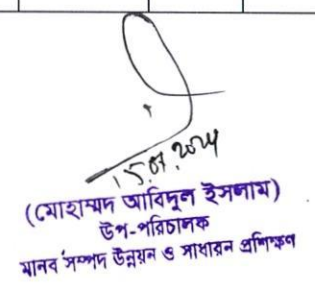 15.07.2024
(মোহাম্মদ আবিদুল ইসলাম)
উপ-পরিচালক
মানব সম্পদ উন্নয়ন ও সাধারন প্রশিক্ষণ